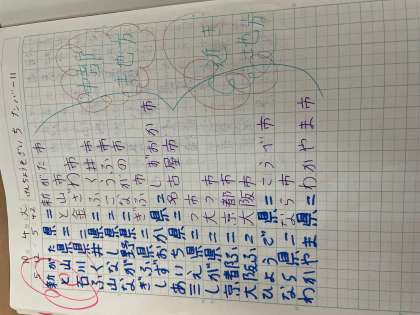 中部地方
近き地方
新がた県=新がた市
と山県=と山市
石川県=金ざわ市
ふく井県=ふく井市
山なし県=こうふ市
なが野県=ながの市
ぎふ県=ぎふ市
しずおか県=しずおか市
あいち県=名古屋市
三え県=つ市
しが県=大つ市
京都ふ=京都市
大阪ふ=大阪市
ひょうご県=こうべ市
なら県=なら市
わかやま県=わかやま市